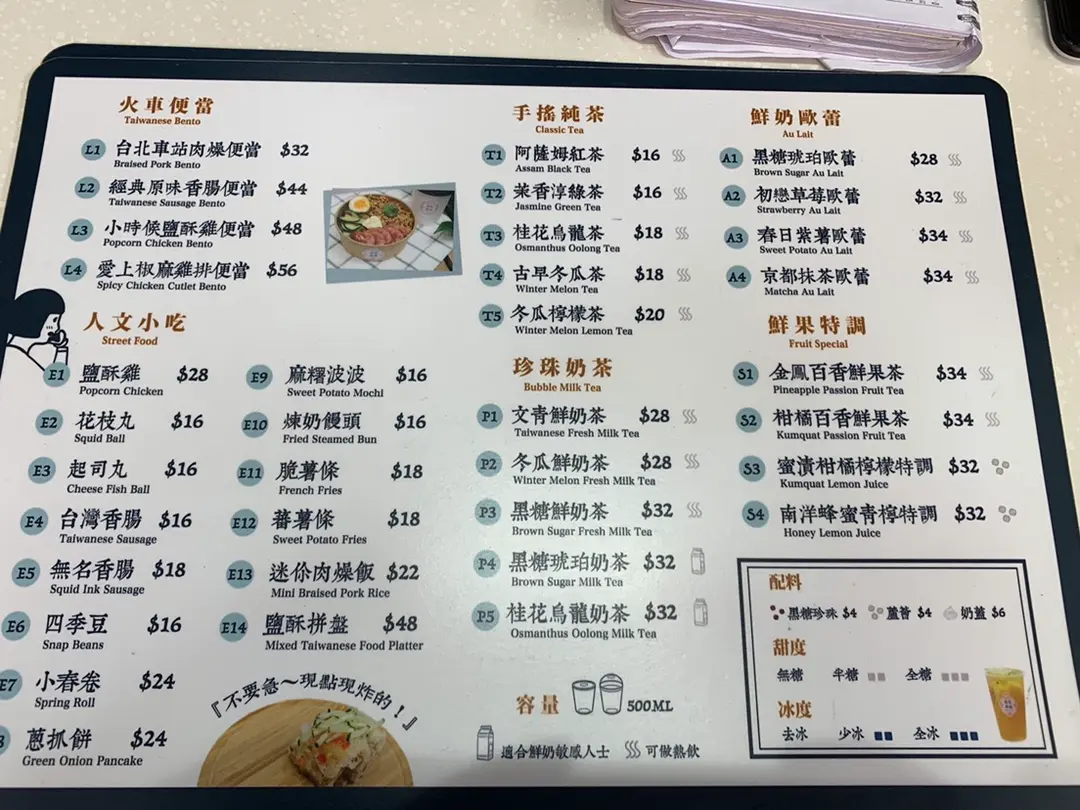 火車便當
Taiwanese Bento
L1 台北車站肉燥便當 $32
Braised Pork Bento
L2 經典原味香腸便當 $44
Taiwanese Sausage Bento
L3 小時候鹽酥雞便當 $48
Popcorn Chicken Bento
L4 愛上椒麻雞排便當 $56
Spicy Chicken Cutlet Bento
人文小吃
Street Food
E1 鹽酥雞 $28
Popcorn Chicken
E2 花枝丸 $16
Squid Ball
E3 起司丸 $16
Cheese Fish Ball
E4 台灣香腸 $16
Taiwanese Sausage
E5 無名香腸 $18
Squid Ink Sausage
E6 四季豆 $16
Snap Beans
E7 小春卷 $24
Spring Roll
蔥抓餅 $24
Green Onion Pancake
E9 麻糬波波 $16
Sweet Potato Mochi
E10 煉奶饅頭 $16
Fried Steamed Bun
E11 脆薯條 $18
French Fries
E12 蕃薯條 $18
Sweet Potato Fries
E13 迷你肉燥飯 $22
Mini Braised Pork Rice
E14 鹽酥拼盤 $48
Mixed Taiwanese Food Platter
『不要急～現點現炸的！』
手搖純茶
Classic Tea
T1 阿薩姆紅茶 $16
Assam Black Tea
T2 茉香淳綠茶 $16
Jasmine Green Tea
T3 桂花烏龍茶 $18
Osmanthus Oolong Tea
T4 古早冬瓜茶 $18
Winter Melon Tea
T5 冬瓜檸檬茶 $20
Winter Melon Lemon Tea
珍珠奶茶
Bubble Milk Tea
P1 文青鮮奶茶 $28
Taiwanese Fresh Milk Tea
P2 冬瓜鮮奶茶 $28
Winter Melon Fresh Milk Tea
P3 黑糖鮮奶茶 $32
Brown Sugar Fresh Milk Tea
P4 黑糖琥珀奶茶 $32
Brown Sugar Milk Tea
P5 桂花烏龍奶茶 $32
Osmanthus Oolong Milk Tea
容量 500ML
適合鮮奶敏感人士 可做熱飲
鮮奶歐蕾
Au Lait
A1 黑糖琥珀歐蕾 $28
Brown Sugar Au Lait
A2 初戀草莓歐蕾 $32
Strawberry Au Lait
A3 春日紫薯歐蕾 $34
Sweet Potato Au Lait
A4 京都抹茶歐蕾 $34
Matcha Au Lait
鮮果特調
Fruit Special
S1 金鳳百香鮮果茶 $34
Pineapple Passion Fruit Tea
S2 柑橘百香鮮果茶 $34
Kumquat Passion Fruit Tea
S3 蜜漬柑橘檸檬特調 $32
Kumquat Lemon Juice
S4 南洋蜂蜜青檸特調 $32
Honey Lemon Juice
配料
黑糖珍珠 $4 蘆薈 $4 奶蓋 $6
甜度
無糖 半糖 全糖
冰度
去冰 少冰 全冰